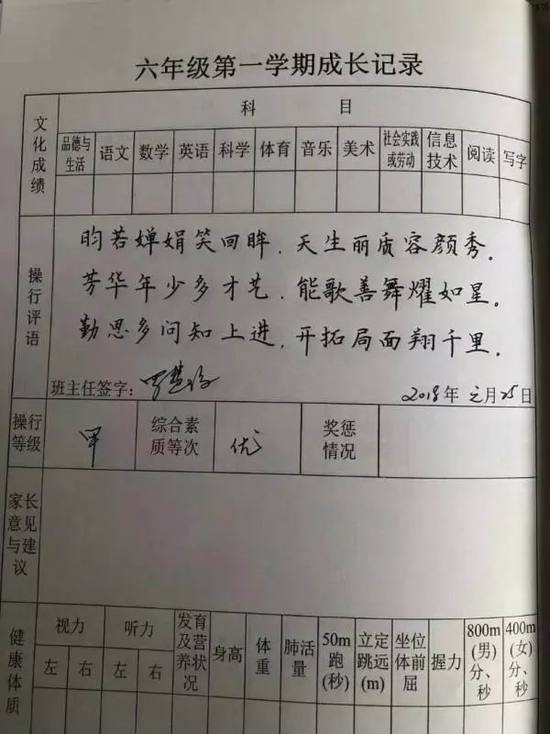 六年级第一学期成长记录
文化成绩
科 目
品德与生活 语文 数学 英语 科学 体育 音乐 美术 社会实践或劳动 信息技术 阅读 写字
操行评语
昀若婵娟笑回眸，天生丽质容颜秀。
芳华年少多才艺，能歌善舞耀如星。
勤思多问知上进，开拓局面翔千里。
班主任签字：
2018年 元月25日
操行等级 甲 综合素质等次 优 奖惩情况
家长意见与建议
健康体质
视力 听力 发育及营养状况 身高 体重 肺活量 50m跑(秒) 立定跳远(m) 坐位体前屈 握力 800m(男)分、秒 400m(女)分、秒
左 右 左 右